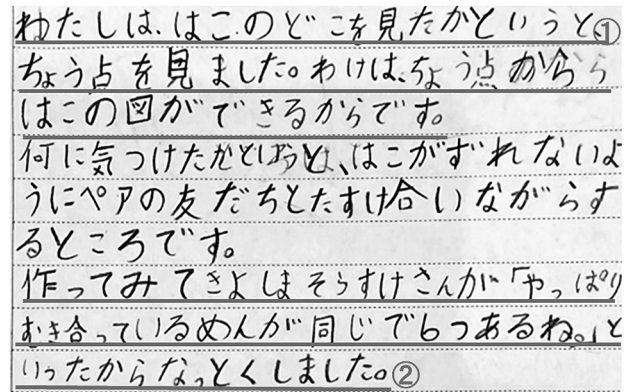 わたしは、はこのどこを見たかというと、①
ちょう点を見ました。わけは、ちょう点から
はこの図ができるからです。
何に気つけたかと、はこがずれないよ
うにペアの友だちとたすけ合いながらす
るところです。
作ってみてきよしまそうすけさんが「やっぱり
むき合っているめんが同じで6つあるね。」と
いったからなっとくしました。②